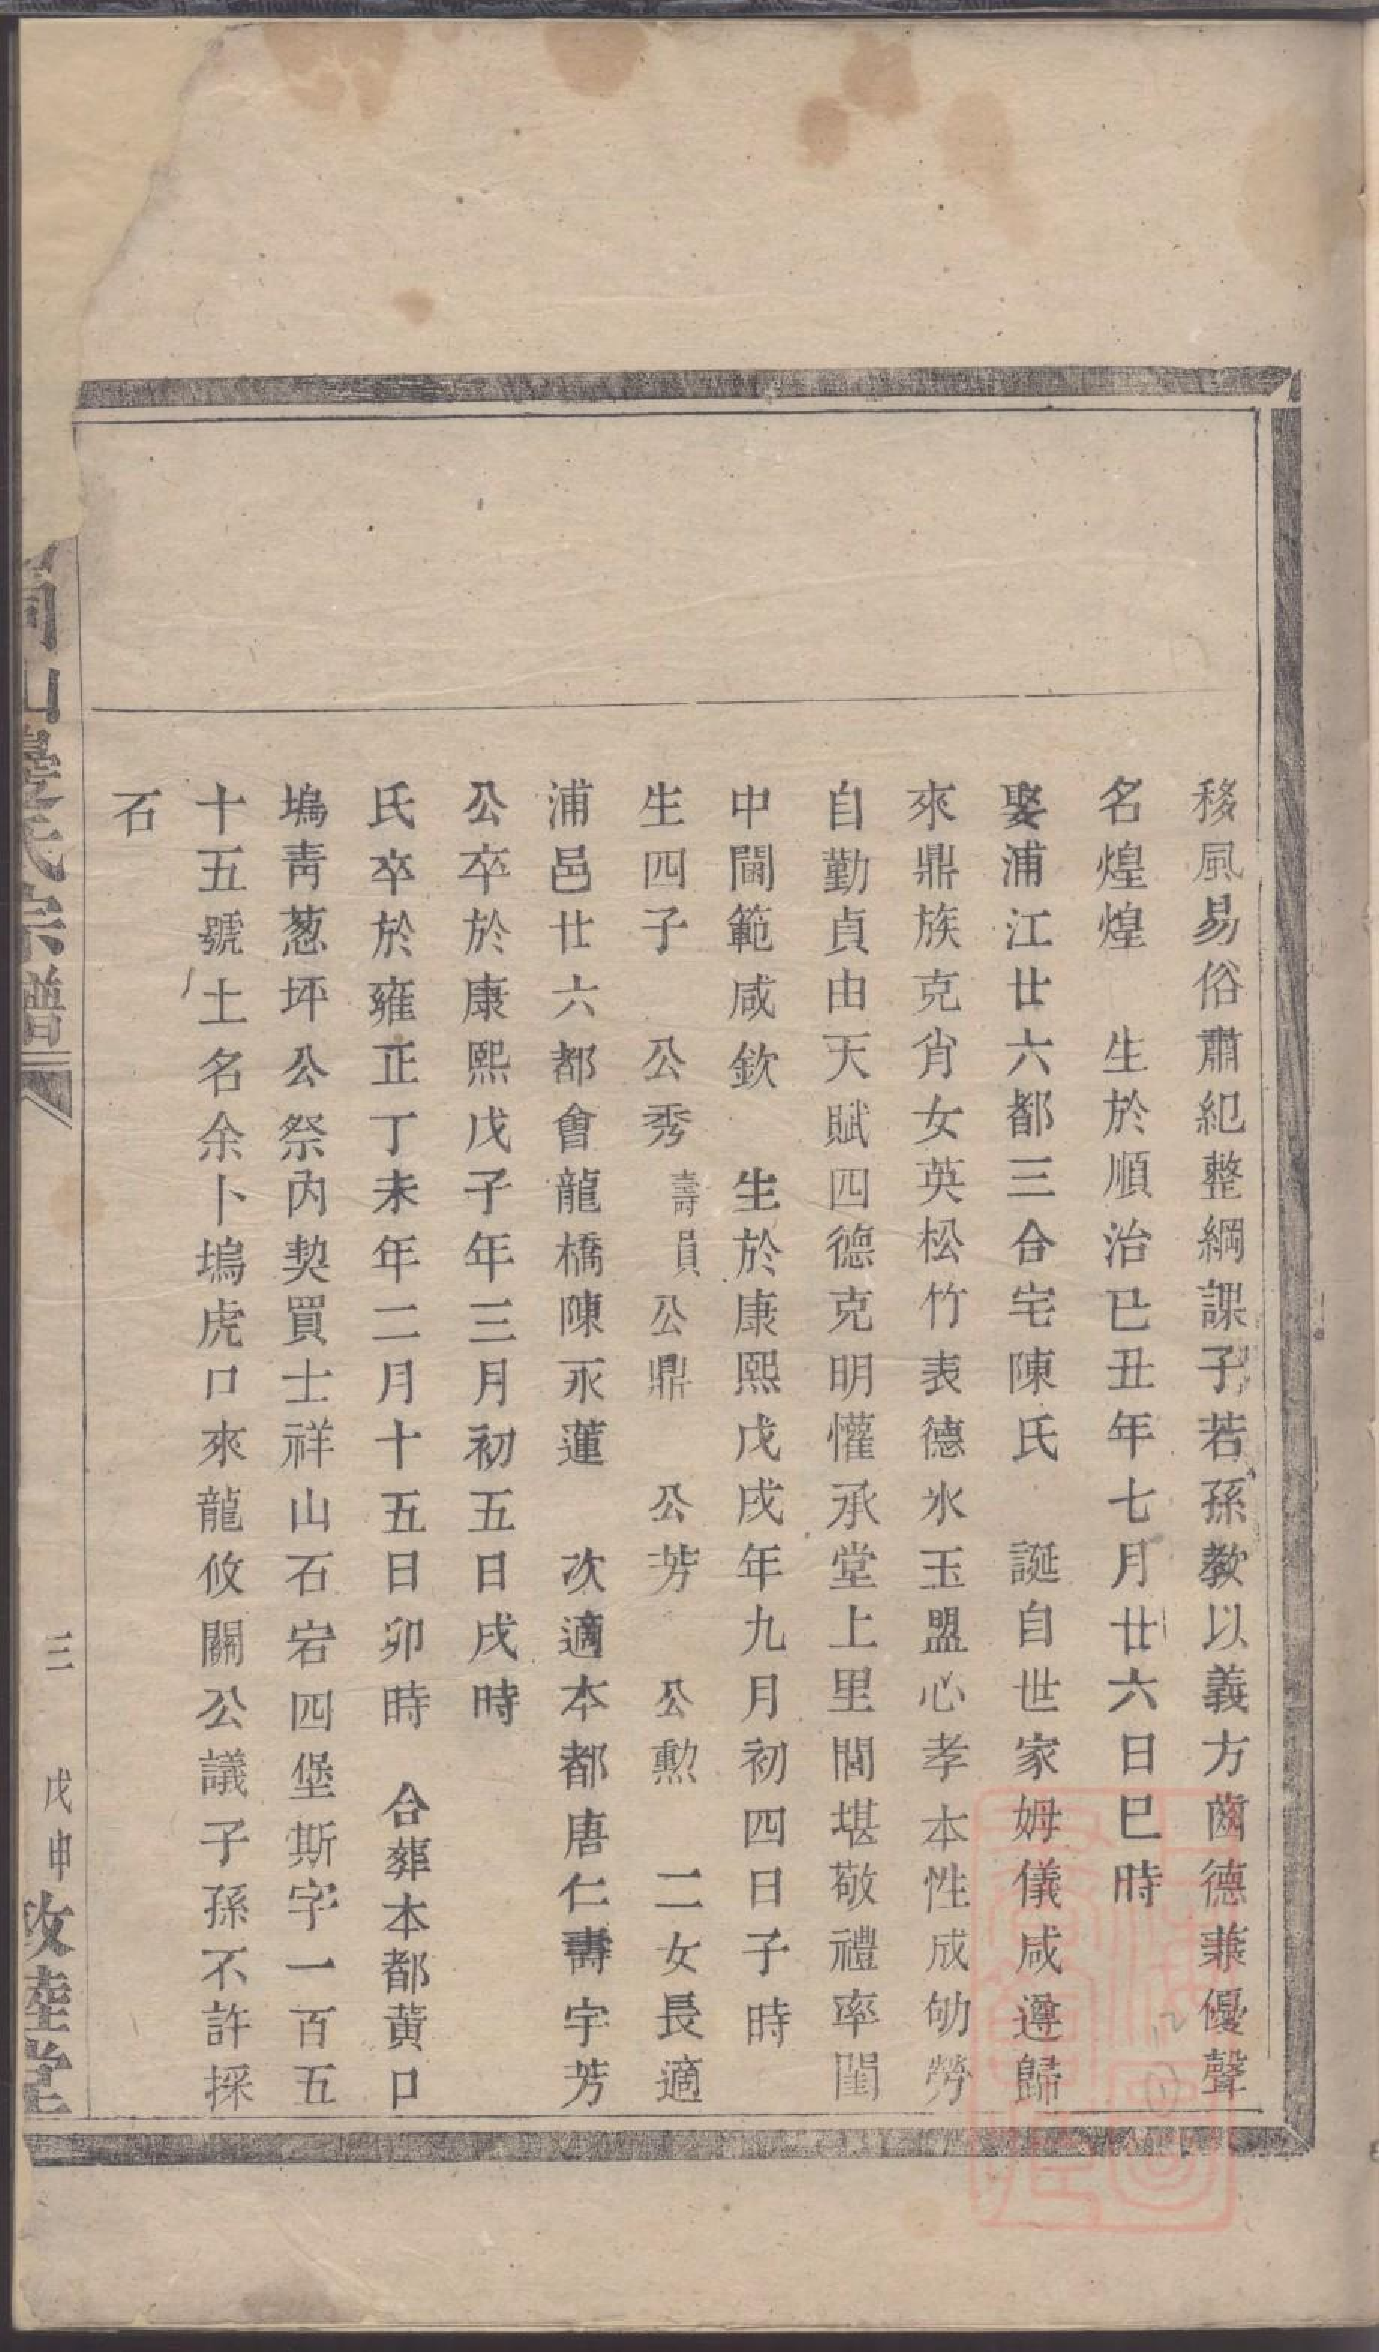 移風易俗肅紀整綱課子若孫教以義方齒德兼優聲
名煌煌　生於順治己丑年七月廿六日巳時
娶浦江廿六都三合宅陳氏　誕自世家姆儀咸遵歸
來鼎族克肖女英松竹表德氷玉盟心孝本性成劬勞
自勤貞由天賦四德克明懽承堂上里閭堪敬禮率閨
中閫範咸欽　生於康熙戊戌年九月初四日子時
生四子　公秀　壽員公鼎　公芳　公勲　二女長適
浦邑廿六都會龍橋陳永蓮　次適本都唐仁壽字芳
公卒於康熙戊子年三月初五日戌時
氏卒於雍正丁未年二月十五日卯時　合葬本都黃口
塢靑葱坪公祭內契買士祥山石宕四堡斯字一百五
十五號土名余卜塢虎口來龍攸關公議子孫不許採
石
山 氏宗譜
三　戊申　敦睦堂